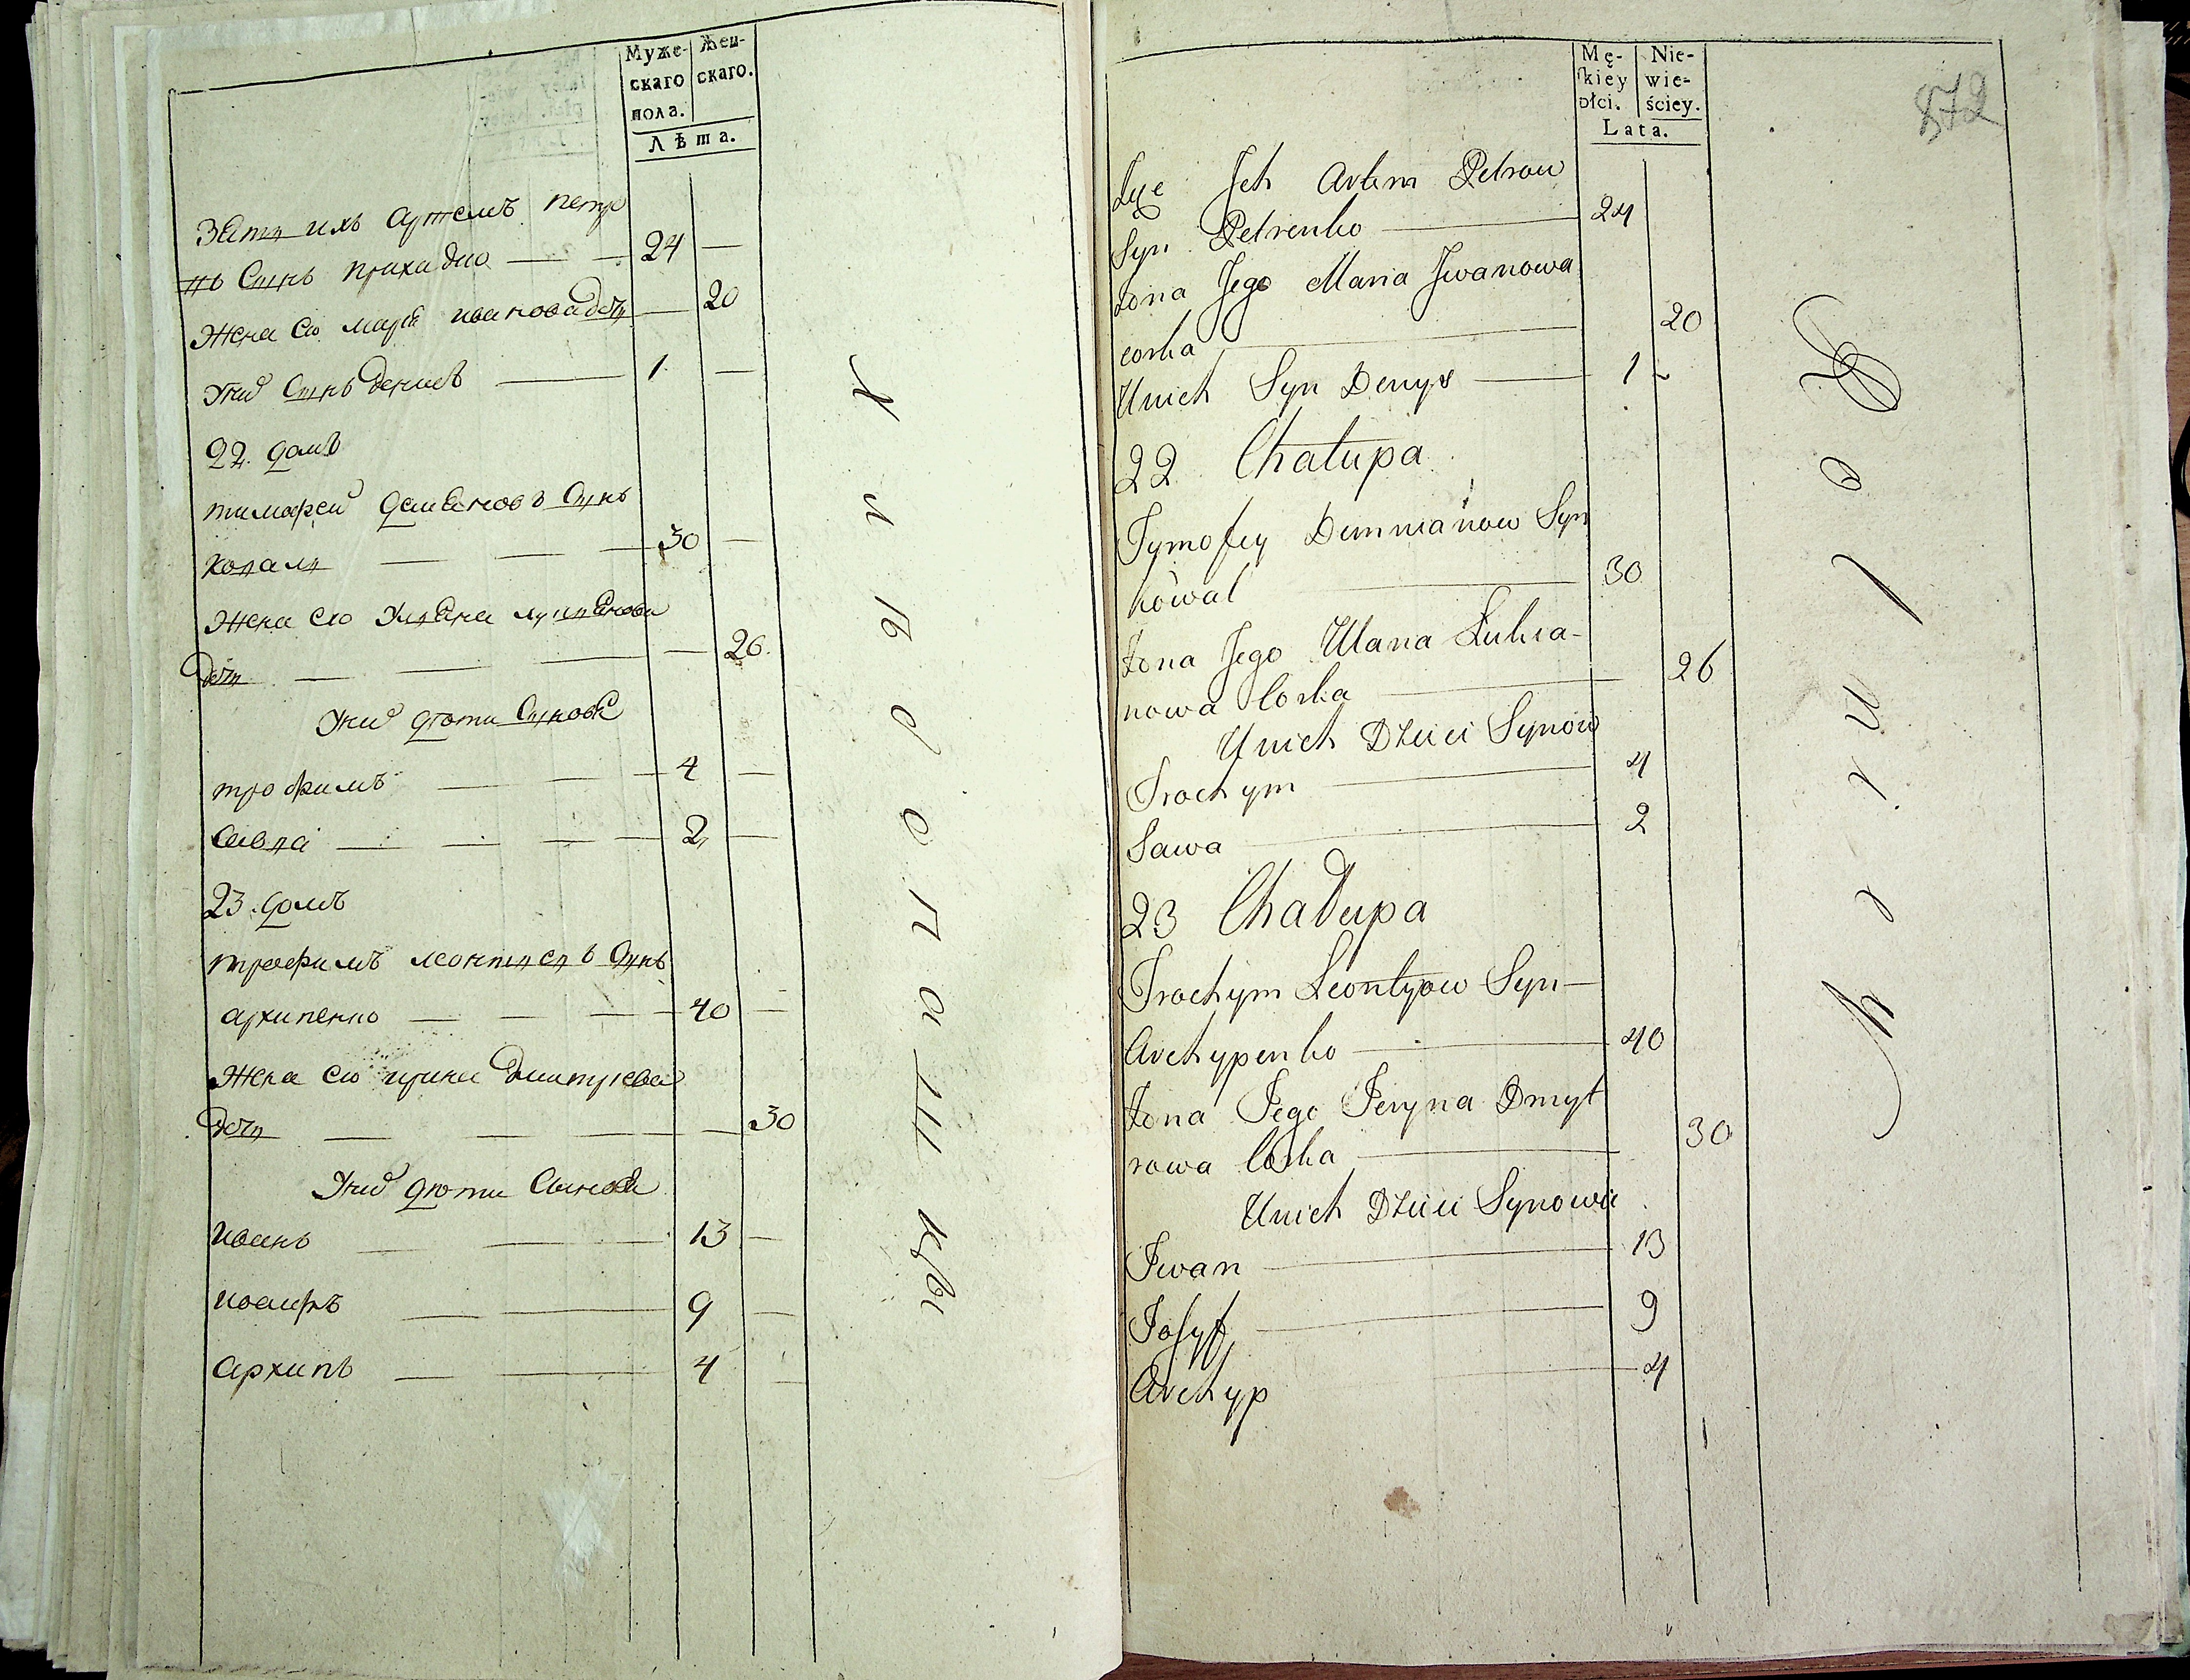 Муже-
скаго
пола.
Жен-
скаго.
Лѣта.
Зять ихъ Артемъ Петро
въ Сынъ
24
Жена его Марія Иванова дочь
20
У нид Сынъ Денисъ
1
22. домъ
Тимофей Демяновъ Сынъ
Коваль
30
Жена его Уляна Лукянова
дочь
26
У нид дѣти Сыновѣ
Трофимъ
4
Савва
2
23. домъ
Трофимъ Леонтіевъ Сынъ
Архипенко
40
Жена его Ирина Дмитріева
дочь
30
У нид дѣти Сыновѣ
Иванъ
13
Иосифъ
9
Архипъ
4
872
Mę-
kiey
płci.
Nie-
wie-
ściey.
Lata.
Jch Artem Petrow
Syn Petrenko
24
Żona Jego Maria Jwanowa
corka
20
Unich Syn Denys
1
22 Chałupa
Tymofey Demnianow Syn
kowal
30
Żona Jego Ulana Łukia-
nowa Corka
26
Unich Dzieci Synow
Trochym
4
Sawa
2
23 Chałupa
Trochym Leontyow Syn
Archypenko
40
Żona Jego Jeryna Dmyt
rowa Corka
30
Unich Dzieci Synowie
Jwan
13
Josyf
9
Archyp
4